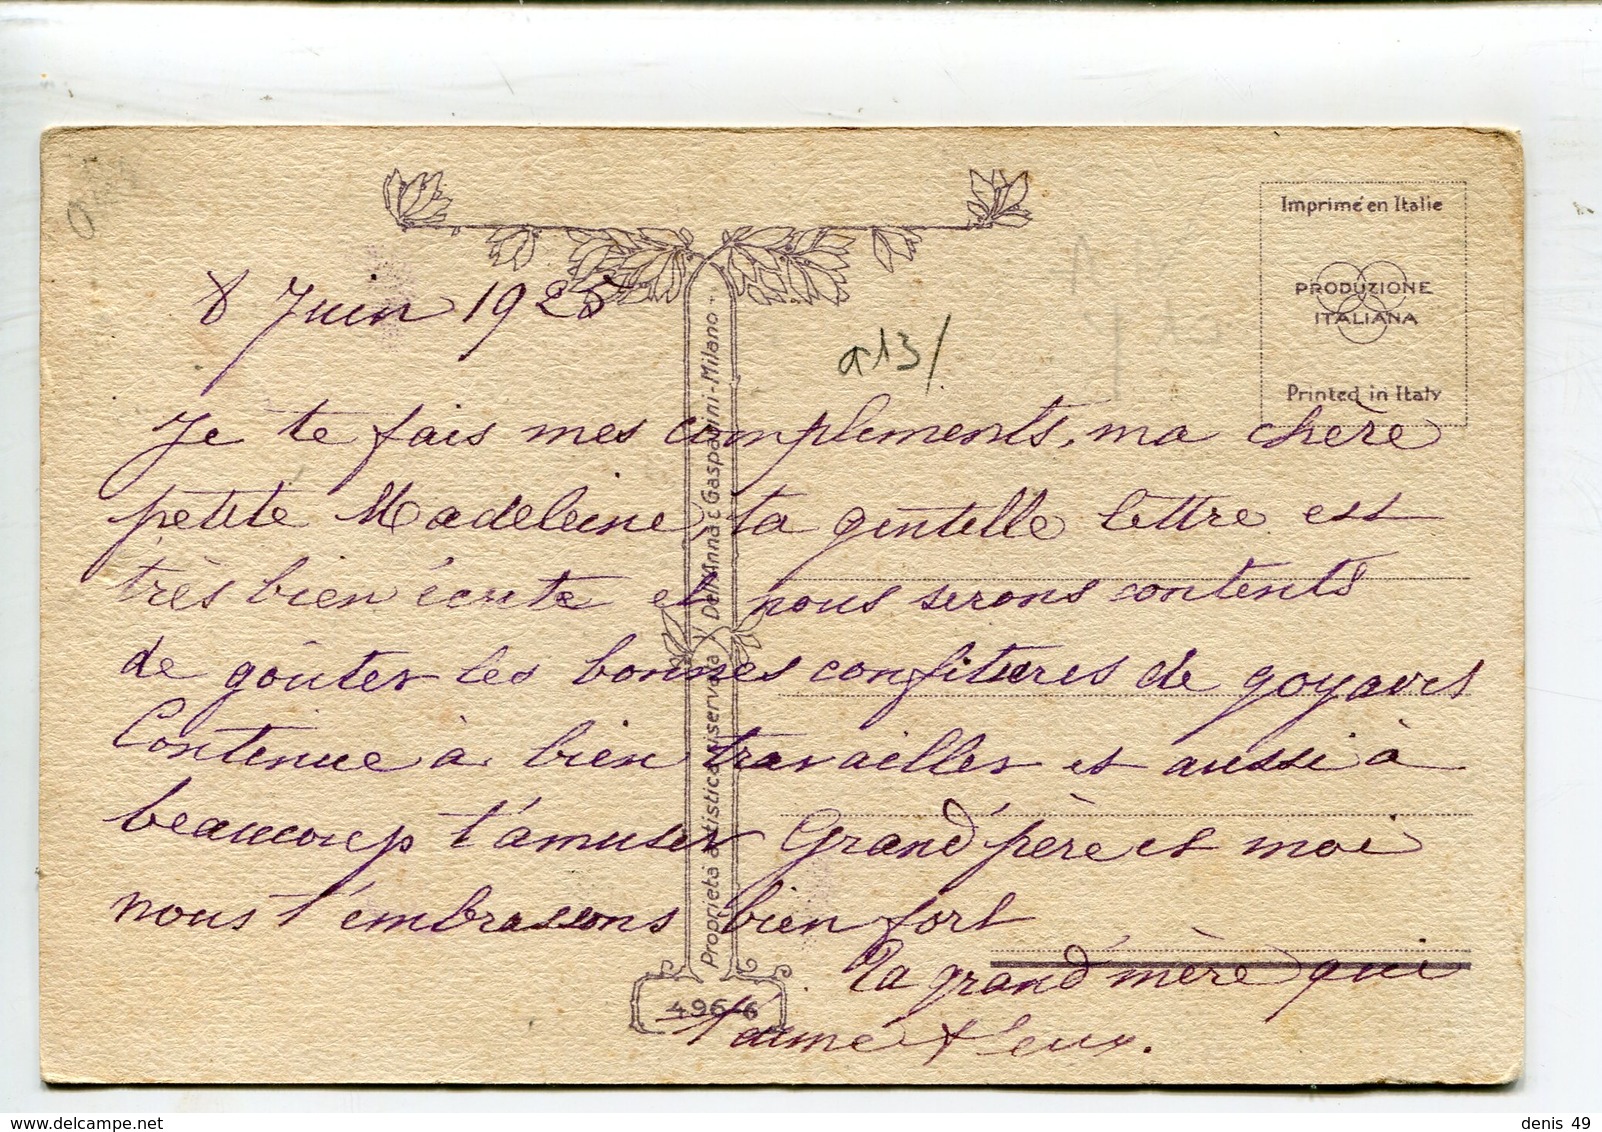 Imprimé en Italie
PRODUZIONE
ITALIANA
Printed in Italy
8 Juin 1925
a13/
Je te fais mes compliments, ma chère
petite Madeleine, ta gentille lettre est
très bien écrite et nous serons contents
de goûter les bonnes confitures de goyaves
Continue à bien travailler et aussi à
beaucoup t'amuser Grand'père et moi
nous t'embrassons bien fort
Ta grand'mère qui
t'aime
Proprietà artistica riservata / Dell'Anna & Gasparini - Milano -
496-6
denis 49